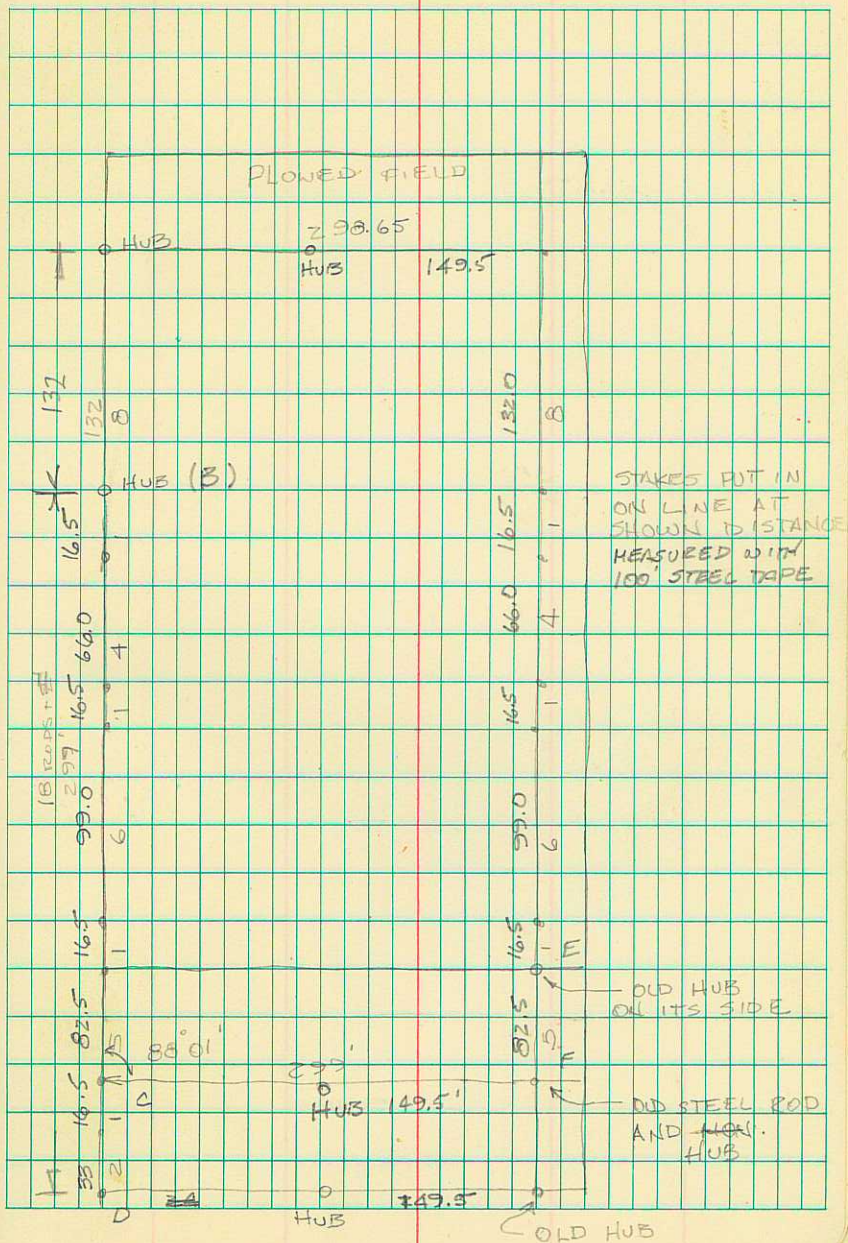 PLOWED FIELD
298.65
HUB
HUB
149.5
132
132
8
132.0
8
HUB (B)
STAKES PUT IN
ON LINE AT
SHOWN DISTANCE
MEASURED WITH
100' STEEL TAPE
16.5
1
16.5
1
66.0
4
66.0
4
16.5
1
16.5
1
18 RODS +
299'
99.0
6
99.0
6
16.5
1
16.5
1
E
OLD HUB
ON ITS SIDE
82.5
5
88°01'
82.5
5
F
299'
C
HUB 149.5'
OLD STEEL ROD
AND MON.
HUB
16.5
1
33
2
D
HUB
149.5
OLD HUB